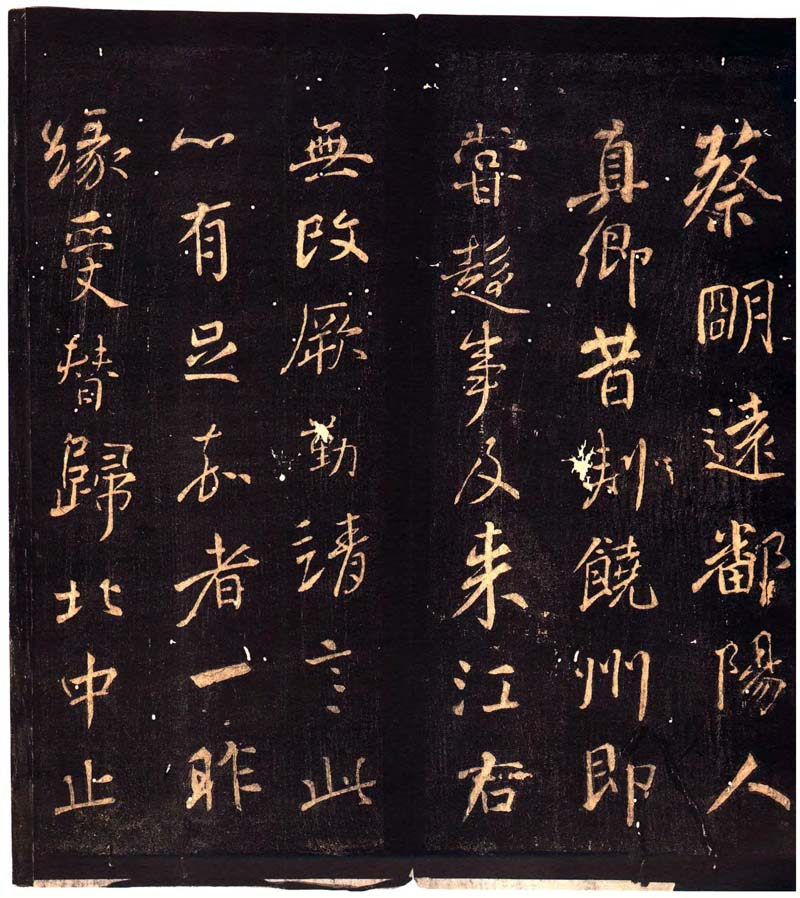 蔡明遠鄱陽人
真卿昔刺饒州即
嘗趍事及来江右
無改厥勤靖言此
心有足嘉者一昨
緣受替歸北中止